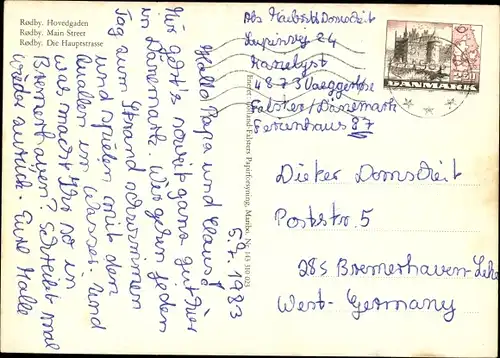 Rødby. Hovedgaden
Rødby. Main Street
Rødby. Die Hauptstrasse
5.7.1983
Hallo Papa und Claus!
Mir geht's soweit ganz gut hier
in Dänemark. Wir gehen jeden
Tag zum Strand schwimmen
und spielen mit den
Quallen im Wasser. Und
was macht Ihr so in
Bremerhaven? Schreibt mal
wieder zurück. Eure
Eneret: Lolland-Falsters Papirforsyning, Maribo. Nr. 143 350 023
Abs Domscheit
Lupinvej 24
4873 Vaeggerløse
Falster/Dänemark
Ferienhaus 87
DANMARK
Dieter Domscheit
Poststr. 5
285 Bremerhaven-Lehe
West-Germany